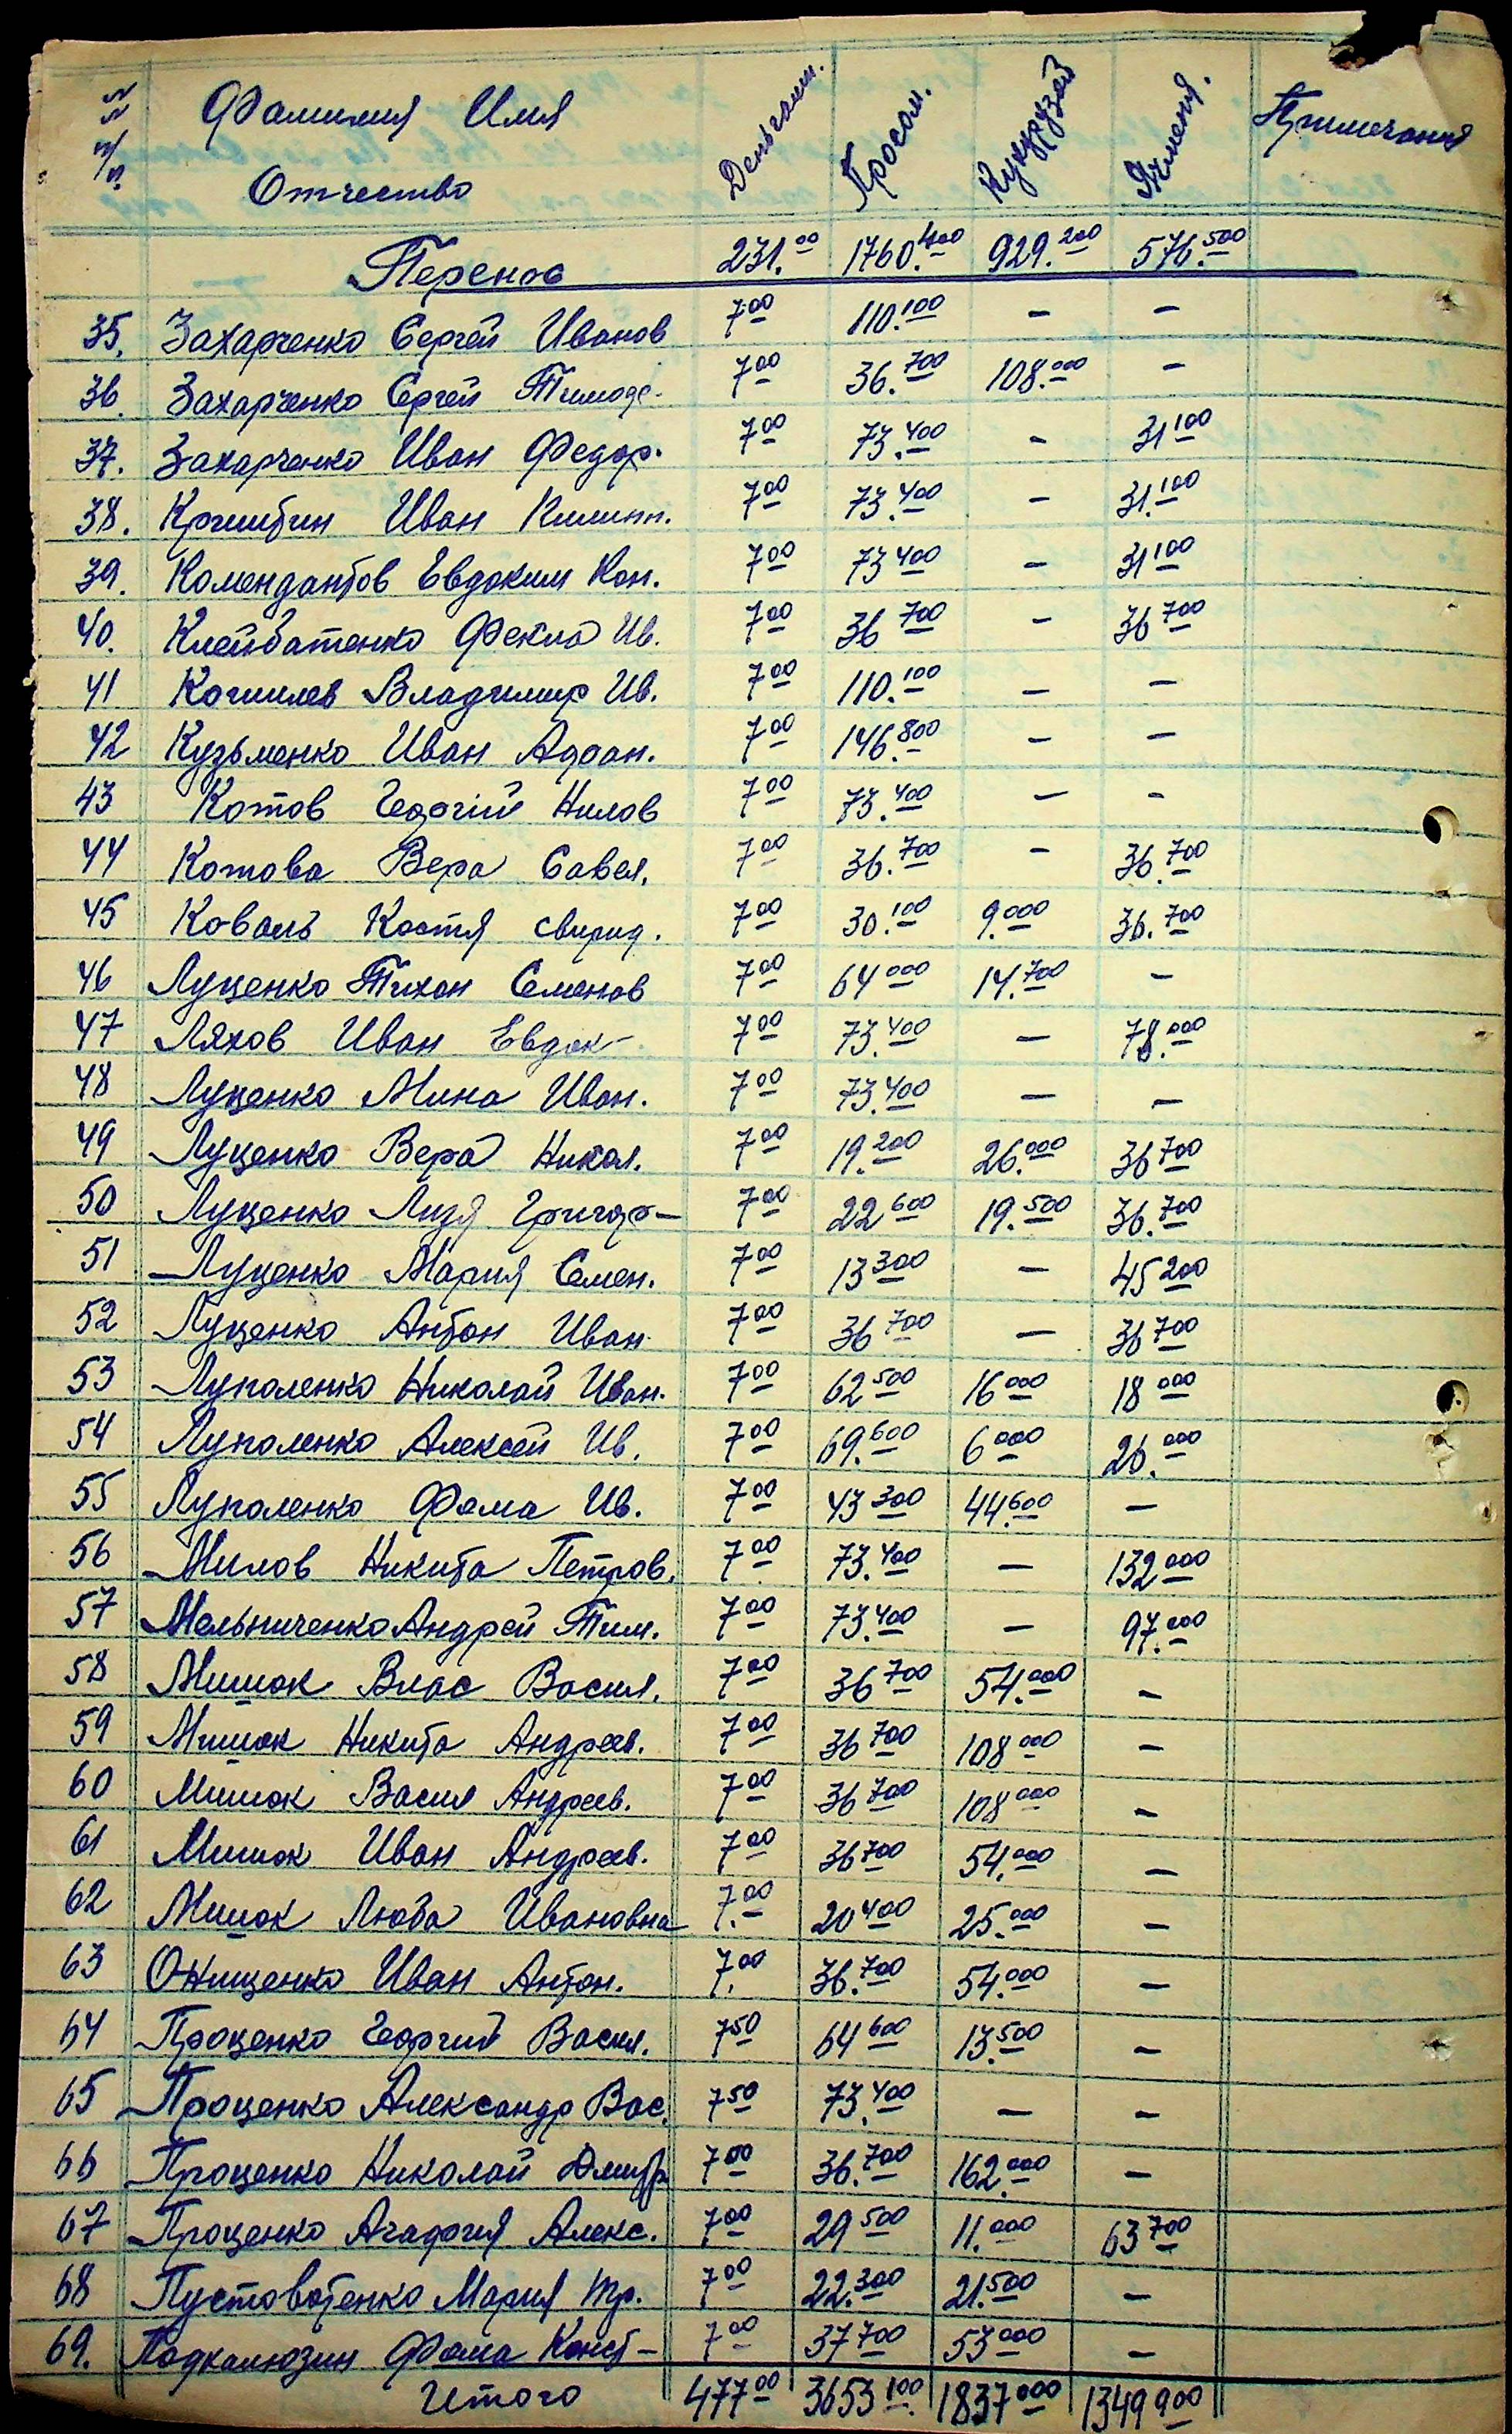 №№ п/п. Фамилия Имя Отчество Деньгами. Просом. Кукурузой Ячменя. Примечания
Перенос 231.00 1760.400 929.200 576.500
35. Захарченко Сергей Иванов 7 00 110.100 — —
36. Захарченко Сергей Тимофе. 7 00 36.700 108.000 —
37. Захарченко Иван Федор. 7 00 73.400 - 31 100
38. Иван 7 00 73.400 - 31.100
39. Комендантов Евдоким Кон. 7 00 73 400 - 31 100
40. Клейбатенко Фекла Ив. 7 00 36 700 - 36 700
41 Владимир Ив. 7 00 110.100 — —
42 Кузьменко Иван Адоан. 7 00 146.800 — —
43 Котов Георгий Нилов 7 00 73.400 — -
44 Котова Вера Савел. 7 00 36.700 - 36.700
45 Коваль Костя свирид. 7 00 30.100 9.000 36.700
46 Луценко Тихон Семенов 7 00 64 000 14.700 —
47 Ляхов Иван Евдок- 7 00 73.400 — 78.000
48 Луценко Мина Иван. 7 00 73.400 — —
49 Луценко Вера Никол. 7 00 19.200 26.000 36 700
50 Луценко Лидя Григор- 7 00 22 600 19.500 36.700
51 Луценко Мария Семен. 7 00 13 300 — 45 200
52 Луценко Антон Иван 7 00 36 700 — 36 700
53 Луполенко Николай Иван. 7 00 62 500 16 000 18 000
54 Луполенко Алексей Ив. 7 00 69.600 6 000 26.000
55 Луполенко Фома Ив. 7 00 43 300 44.600 —
56 Милов Никита Петров. 7 00 73.400 — 132 000
57 Мельниченко Андрей Тим. 7 00 73.400 — 97.000
58 Мишок Влас Васил. 7 00 36 700 54.000 -
59 Мишок Никита Андреев. 7 00 36 700 108 000 -
60 Мишок Васил Андреев. 7 00 36 700 108 000 -
61 Мишок Иван Андреев. 7 00 36 700 54.000 -
62 Мишок Люба Ивановна 7.00 20 400 25.000 -
63 Онищенко Иван Антон. 7.00 36.700 54.000 -
64 Проценко Георгий Васил. 7 50 64 600 13.500 -
65 Проценко Александр Вас. 7 50 73.400 — -
66 Проценко Николай Дмитр 7 00 36.700 162.000 -
67 Проценко Агафогия Алекс. 7 00 29 500 11.000 63 700
68 Пустовотенко Мария Тр. 7 00 22.300 21.500 -
69. Подкалюзин Фома Конст- 7 00 37 700 53 000 -
Итого 477 00 3653 100 1837 000 1349 900